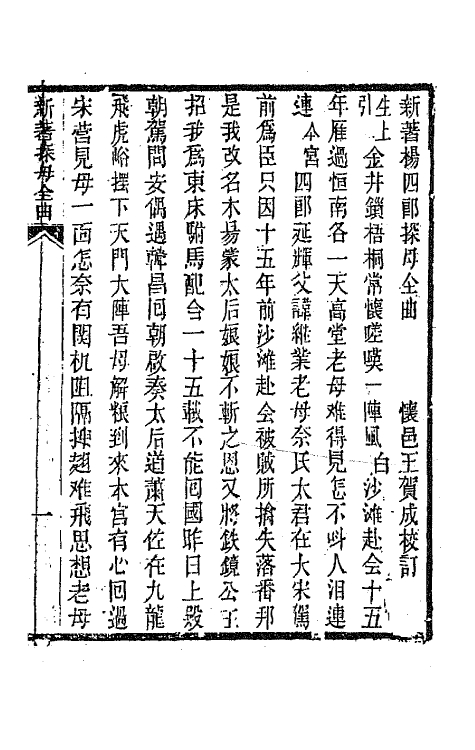 新著楊四郎探母全曲　懷邑王賀成校訂
生上引　金井鎖梧桐常懷嗟嘆一陣風　白　沙滩赴会十五
年雁過恒南各一天高堂老母难得見怎不呌人泪連
連　本宮四郎延輝父諱継業老母奈氏太君在大宋駕
前爲臣只因十五年前沙滩赴会被賊所擒失落番邦
是我改名木易蒙太后娘娘不斬之恩又將鉄鏡公主
招我爲東床駙馬配合一十五載不能囘國昨日上殿
朝駕問安偶遇韓昌囘朝啟奏太后道蕭天佐在九龍
飛虎峪擺下天門大陣吾母解粮到來本宮有心囘過
宋营見母一面怎奈有関机阻隔揷翅难飛思想老母
新著探母全曲　一